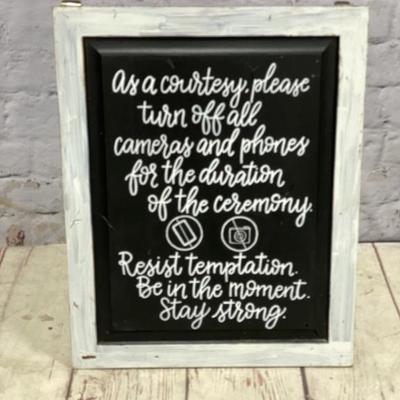 As a courtesy, please
turn off all
cameras and phones
for the duration
of the ceremony.
Resist temptation.
Be in the moment.
Stay strong.